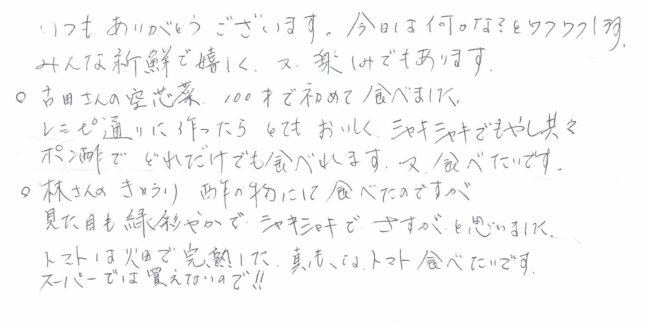 いつも ありがとう ございます。今日は何かな?とワクワクします。
みんな新鮮で嬉しく、又、楽しみでもあります。
○ 吉田さんの空芯菜、100才で初めて食べました。
レシピ通りに作ったら とても おいしく、シャキシャキでもやし共々
ポン酢で どれだけでも食べれます。又、食べたいです。
○ 林さんの きゅうり 酢の物にして食べたのですが
見た目も緑彩やかで、シャキシャキで、さすが、と思いました。
トマトは畑で完熟した、真っ、なトマト食べたいです。
スーパーでは買えないので!!